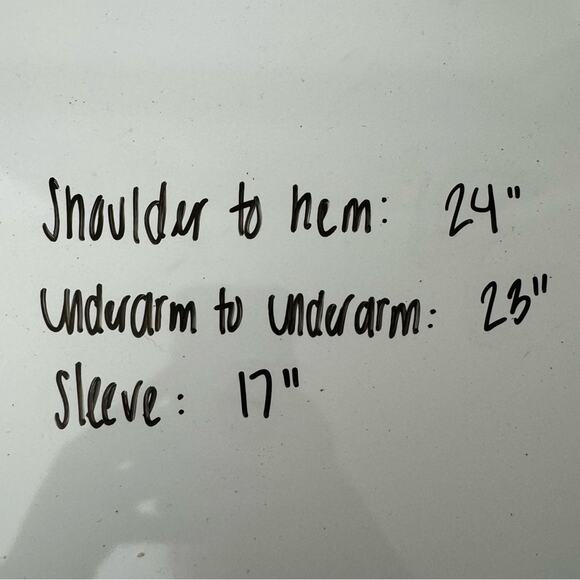 Shoulder to hem: 24"
underarm to underarm: 23"
Sleeve: 17"